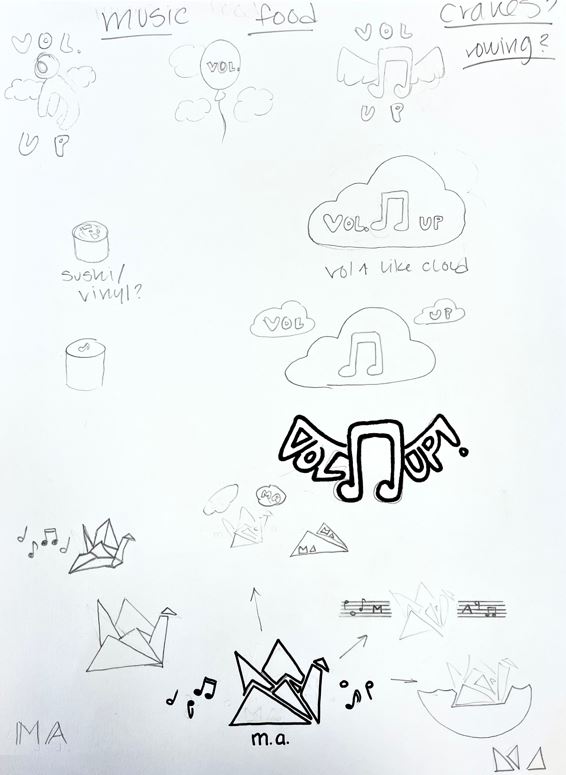 music food cranes?
rowing?
VOL.
UP
VOL.
VOL
UP
VOL. UP
vol ↑ like cloud
sushi/
vinyl?
VOL UP
VOL UP!
MA
MA
MA
M A
m.a.
MA
MA